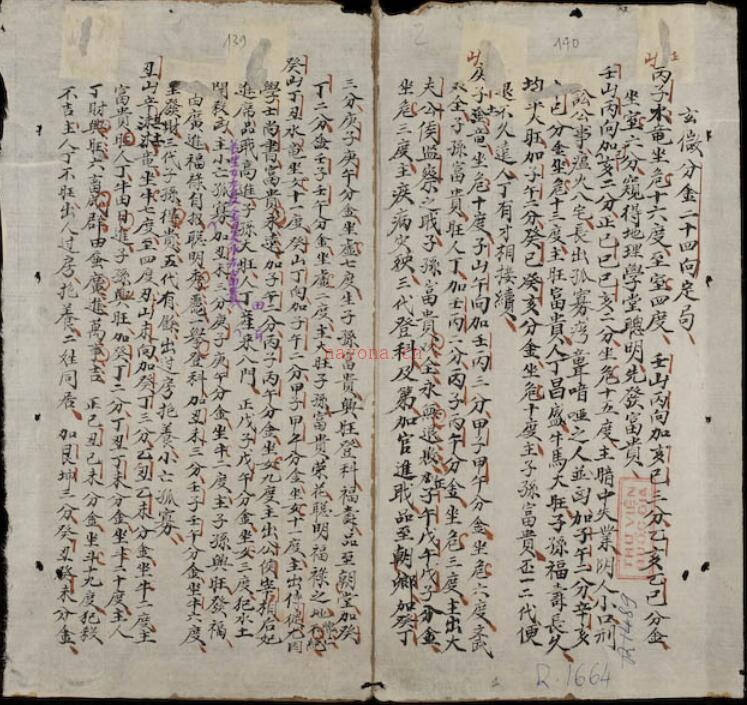 玄儀分金二十四向定局
丙子水竜坐危十六度至室四度 壬山丙向加亥巳三分乙亥乙巳分金
坐室六分窺得地理學堂聰明先發富貴
壬山丙向加亥二分正巳巳亥二分坐危十五度主暗中失業明人小口刑
訟公事瘟火八宅長出孤寡湾聾喑啞之人並凶加子午二分辛亥
巳分金坐危十三度主旺富貴人丁昌盛牛馬大旺子孫福壽長久
均平人旺加子午二分癸巳癸亥分金坐危十度主子孫富貴一二代便
退不久進人丁有才相接續
庚子土竜坐危十度子山午向加壬丙三分甲子甲午分金坐危六度文武
双全子孫富貴旺人丁加壬丙二分丙子丙午分金坐危三度主出大
夫公侯监察之職子孫富貴双全永無退敗加子午戊午戊子分金
坐危三度主疾病火殃三代登科及第加官進職品至朝卿加癸丁
139
140
三分庚子庚午分金坐虛七度生子孫富貴興旺登科福壽品至朝堂加癸
丁二分金壬子壬午分金坐虛二度主大旺子孫富貴榮花聰明福祿之地
癸山丁丑水竜坐女十一度癸山丁向加子午二分甲子甲午分金坐女十一度主出
學士尚書富貴永遠加子午二分丙子丙午分金坐女九度主出公侯宰相后妃
進席品職高進子孫大旺人丁產來入門 正戊子戊午分金坐女三度犯水土
関殺凶主小亡孤寡加丑未三分庚子庚午分金坐牛二度主子孫興旺發福
由廣進福祿自招聰明秀慧之學登科加丑未三分壬子壬午分金坐牛六度
主發財三代子孫得貴五代有餘出过房抱養小亡孤寡
丑山辛丑土竜坐牛七度至四度丑山未向加癸丁三分乙丑乙未分金坐牛二度主
富貴旺人丁牛田日進子孫興旺加癸丁二分丁丑丁未分金坐斗二十度主人
丁財興旺六畜成群田蚕廣進萬事吉 正己丑己未分金坐斗十九度犯殺
不吉主人丁不旺出人过房抱養二姓同居 加艮坤三分癸丑癸未分金
THƯ VIỆN
QUỐC GIA
R.1489
R.1664
nayona.cn